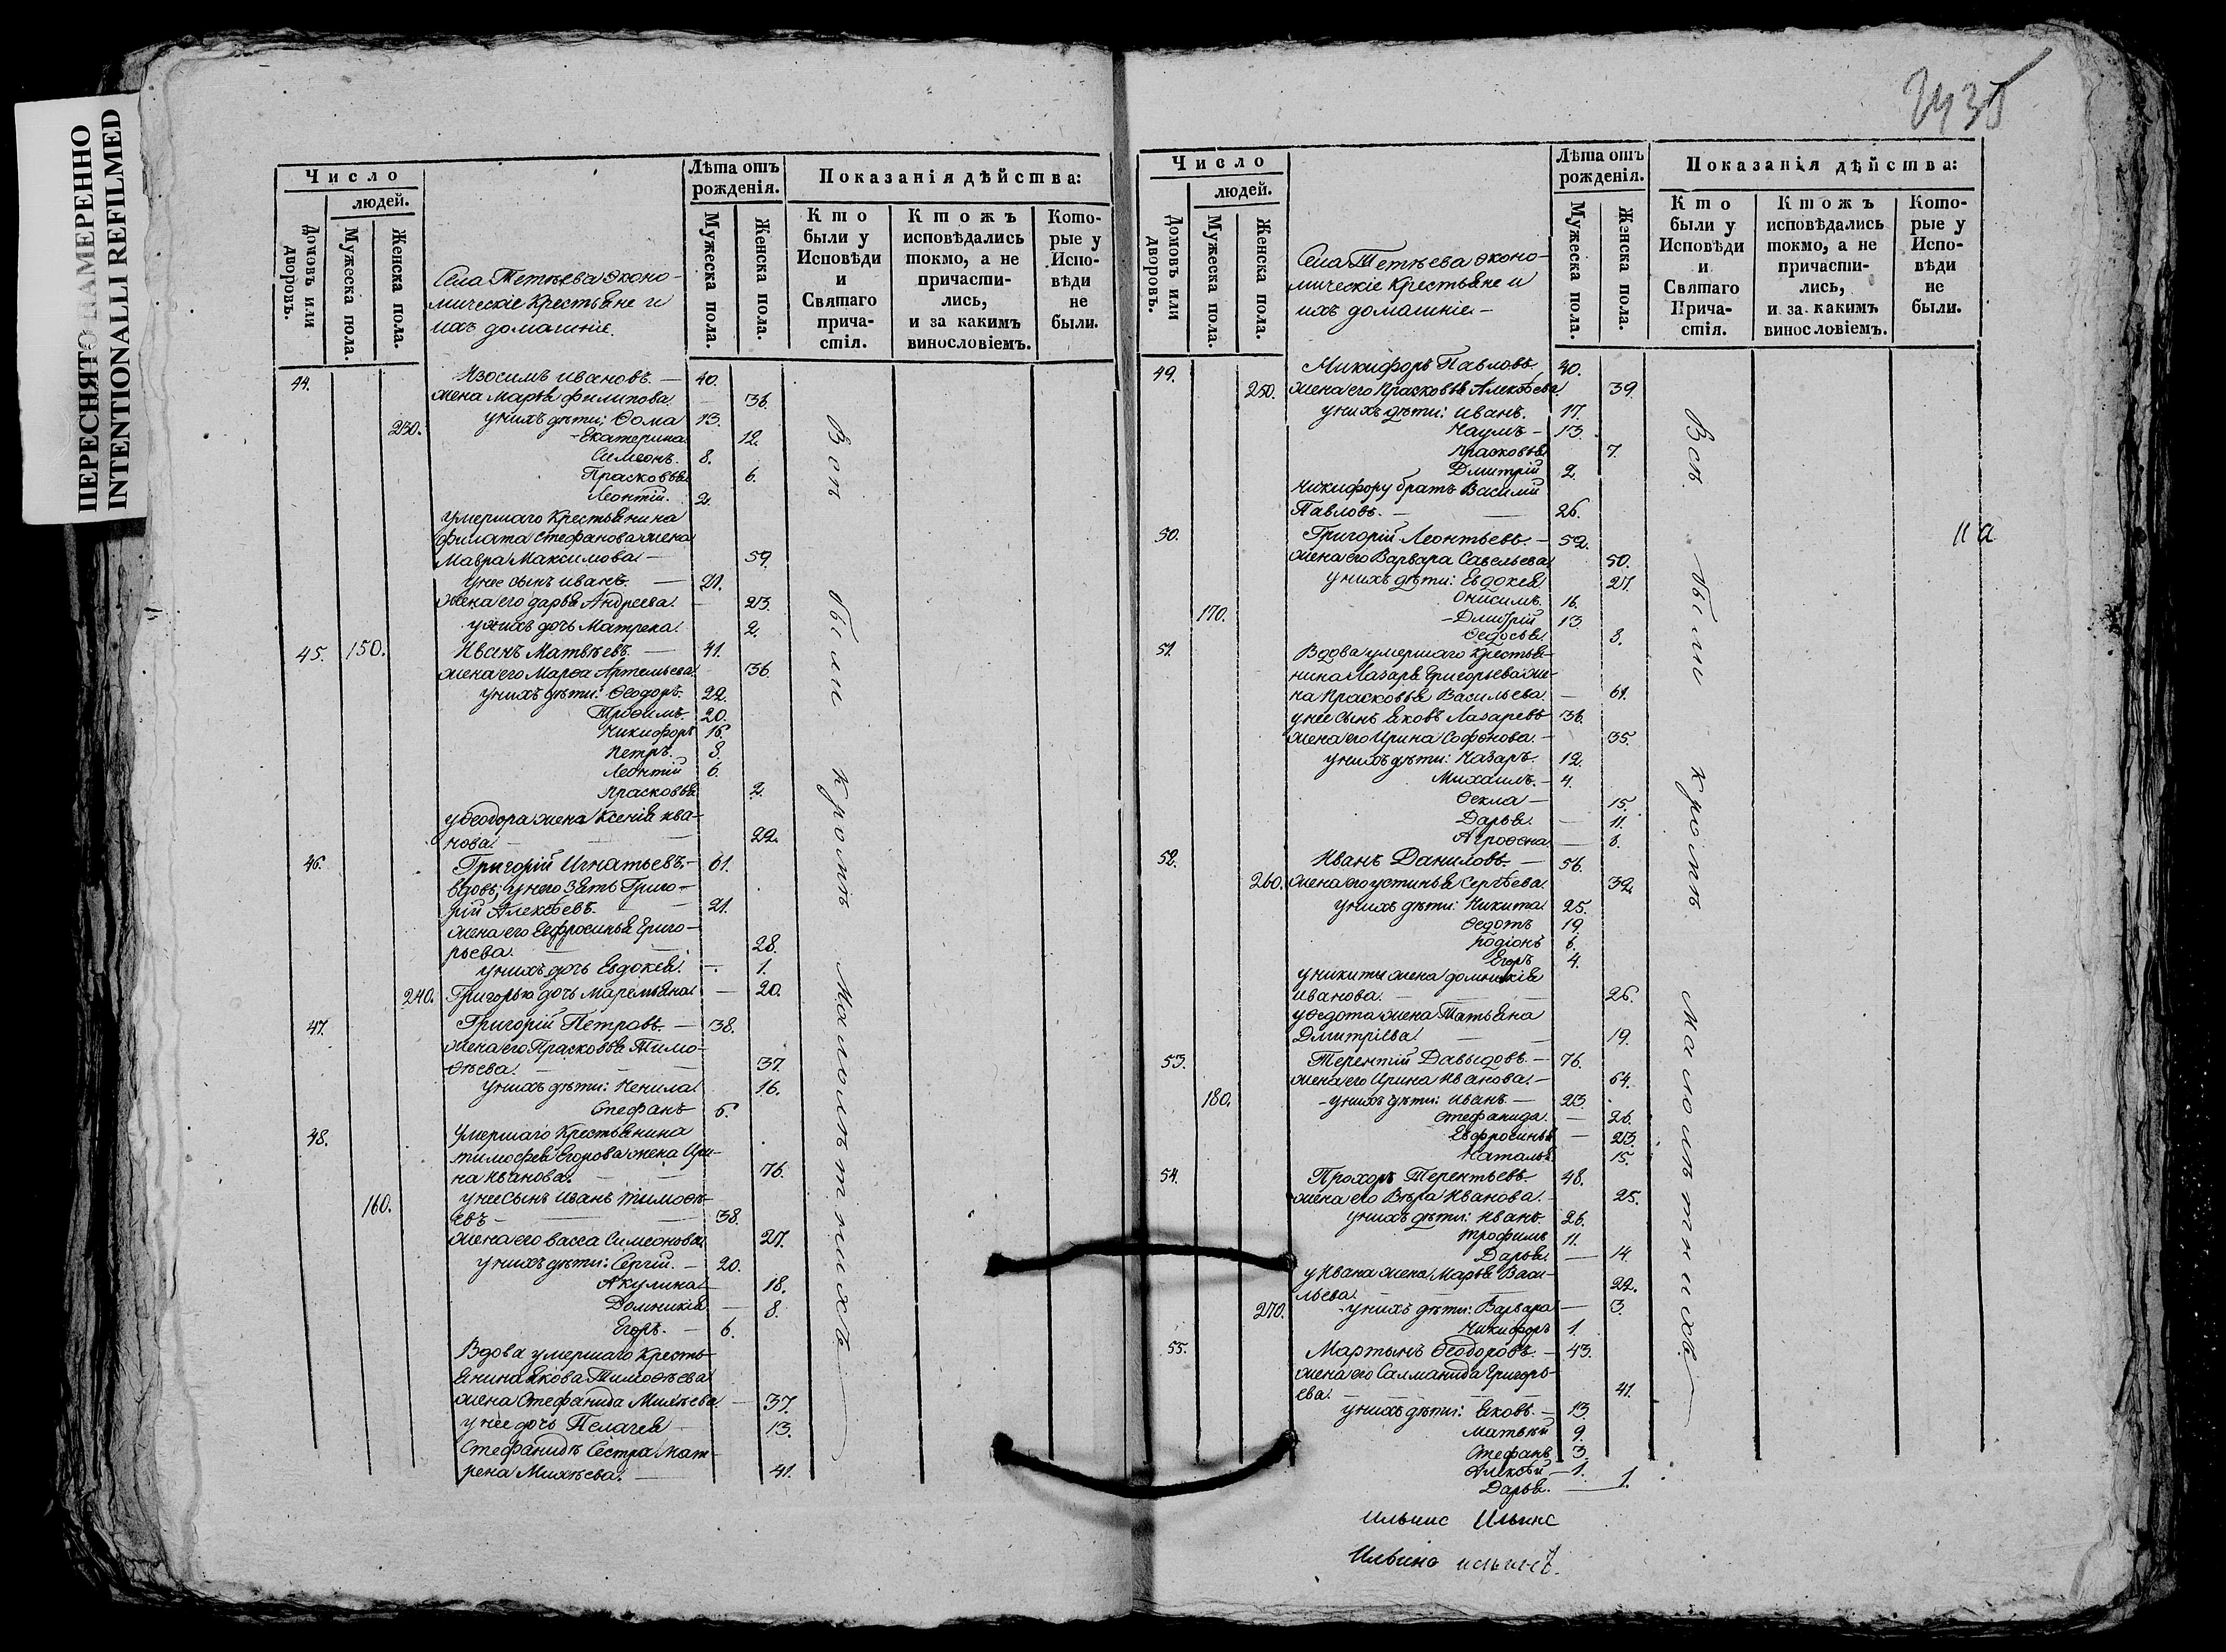 ПЕРЕСНЯТО НАМЕРЕННО
INTENTIONALLI REFILMED
Число
людей.
Домовъ или дворовъ.
Мужеска пола.
Женска пола.
Села Тетѣева Эконо-
мическіе Крестьяне и
ихъ домашніе.
Лѣта отъ рожденія.
Мужеска пола.
Женска пола.
Показанія дѣйства:
Кто были у Исповѣди и Святаго причастія.
Ктожъ исповѣдались токмо, а не причастились, и за какимъ винословіемъ.
Которые у Исповѣди не были.
44. Изосимъ Ивановъ. — 40.
жена Марья Филипова. 36.
230. у нихъ дѣти: Ѳома 13.
Екатерина 12.
Симеонъ. 8.
Прасковья 6.
Леонтій. 2.
Умершаго Крестьянина
Филата Стефанова жена
Мавра Максимова — 59.
у нее сынъ Иванъ. — 21.
жена его Дарья Андреева. — 23.
у нихъ дочь Матрена. 2.
45. 150. Иванъ Матвѣевъ. — 41.
жена его Марѳа Артемьева 36.
у нихъ дѣти: Ѳеодоръ. 22.
Трофимъ. 20.
Никифоръ 16.
Петръ. 8.
Леонтій 6.
Прасковья 2.
у Ѳеодора жена Ксенія Ива-
нова — 22.
46. Григорій Игнатьевъ. — 61.
вдовъ; у него зять Григо-
рій Алексѣевъ. — 21.
жена его Евфросинья Григо-
рьева. — 28.
у нихъ дочь Евдокея. — 1.
240. Григорью дочь Маремьяна — 20.
47. Григорій Петровъ. — 38.
жена его Прасковья Тимо-
ѳѣева. — 37.
у нихъ дѣти: Ненила 16.
Стефанъ 6.
48. Умершаго Крестьянина
Тимофея Егорова жена Ири-
на Иванова. — 76.
160. у нее сынъ Иванъ Тимоѳѣ-
евъ — 38.
жена его Васса Симеонова 27.
у нихъ дѣти: Сергій. — 20.
Акулина — 18.
Домникія — 8.
Егоръ. — 6.
Вдова умершаго Кресть-
янина Якова Тимоѳѣева
жена Стефанида Михѣева — 37.
у нее дочь Пелагея 13.
Стефанидѣ Сестра Мат-
рена Михѣева. — 41.
Всѣ были кромѣ малолѣтнихъ
Число
людей.
Домовъ или дворовъ.
Мужеска пола.
Женска пола.
Села Тетѣева Эконо-
мическіе Крестьяне и
ихъ домашніе —
Лѣта отъ рожденія.
Мужеска пола.
Женска пола.
Показанія дѣйства:
Кто были у Исповѣди и Святаго Причастія.
Ктожъ исповѣдались токмо, а не причастились, и за какимъ винословіемъ.
Которые у Исповѣди не были.
49. Никифоръ Павловъ. 40.
250. жена его Прасковья Алексѣева 39.
у нихъ дѣти: Иванъ. 17.
Наумъ — 13.
Прасковья 7.
Дмитрій 2.
Никифору братъ Василий
Павловъ. — 26.
50. Григорій Леонтьевъ. — 52.
жена его Варвара Савельева 50.
у нихъ дѣти: Евдокея 21.
Онисимъ. 16.
170. Дмитрій 13.
Ѳедосья. 8.
51. Вдова умершаго Крестья-
нина Лазаря Григорьева же-
на Прасковья Васильева — 61.
у нее сынъ Яковъ Лазаревъ 36.
жена его Ирина Софонова. — 35.
у нихъ дѣти: Назаръ. 12.
Михаилъ. — 4.
Ѳекла — 15.
Дарья. — 11.
Агроѳена — 6.
52. Иванъ Даниловъ. — 56.
260. жена его Устинья Сергѣева 32.
у нихъ дѣти: Никита 25.
Ѳедотъ 19.
Родіонъ 6.
Егоръ 4.
у Никиты жена Домникія
Иванова. — 26.
у Ѳедота жена Татьяна
Дмитріева — 19.
53. Терентій Давыдовъ — 76.
жена его Ирина Иванова. — 64.
180. у нихъ дѣти: Иванъ. — 23.
Стефанида. — 26.
Евфросинья — 23.
Наталья 15.
54. Прохоръ Терентьевъ. 48.
жена его Вѣра Иванова. — 25.
у нихъ дѣти: Иванъ. 26.
Трофимъ 11.
Дарья. — 14.
у Ивана жена Марья Васи-
льева. — 22.
270. у нихъ дѣти: Варвара — 3.
Никифоръ 1.
55. Мартынъ Ѳеодоровъ. — 43.
жена его Салманида Григорь-
ева. — 41.
у нихъ дѣти: Яковъ. — 13.
Матвѣй 9.
Стефанъ 3.
Алексѣй — 1.
Дарья. — 1.
Всѣ были кромѣ малолѣтнихъ
11 а